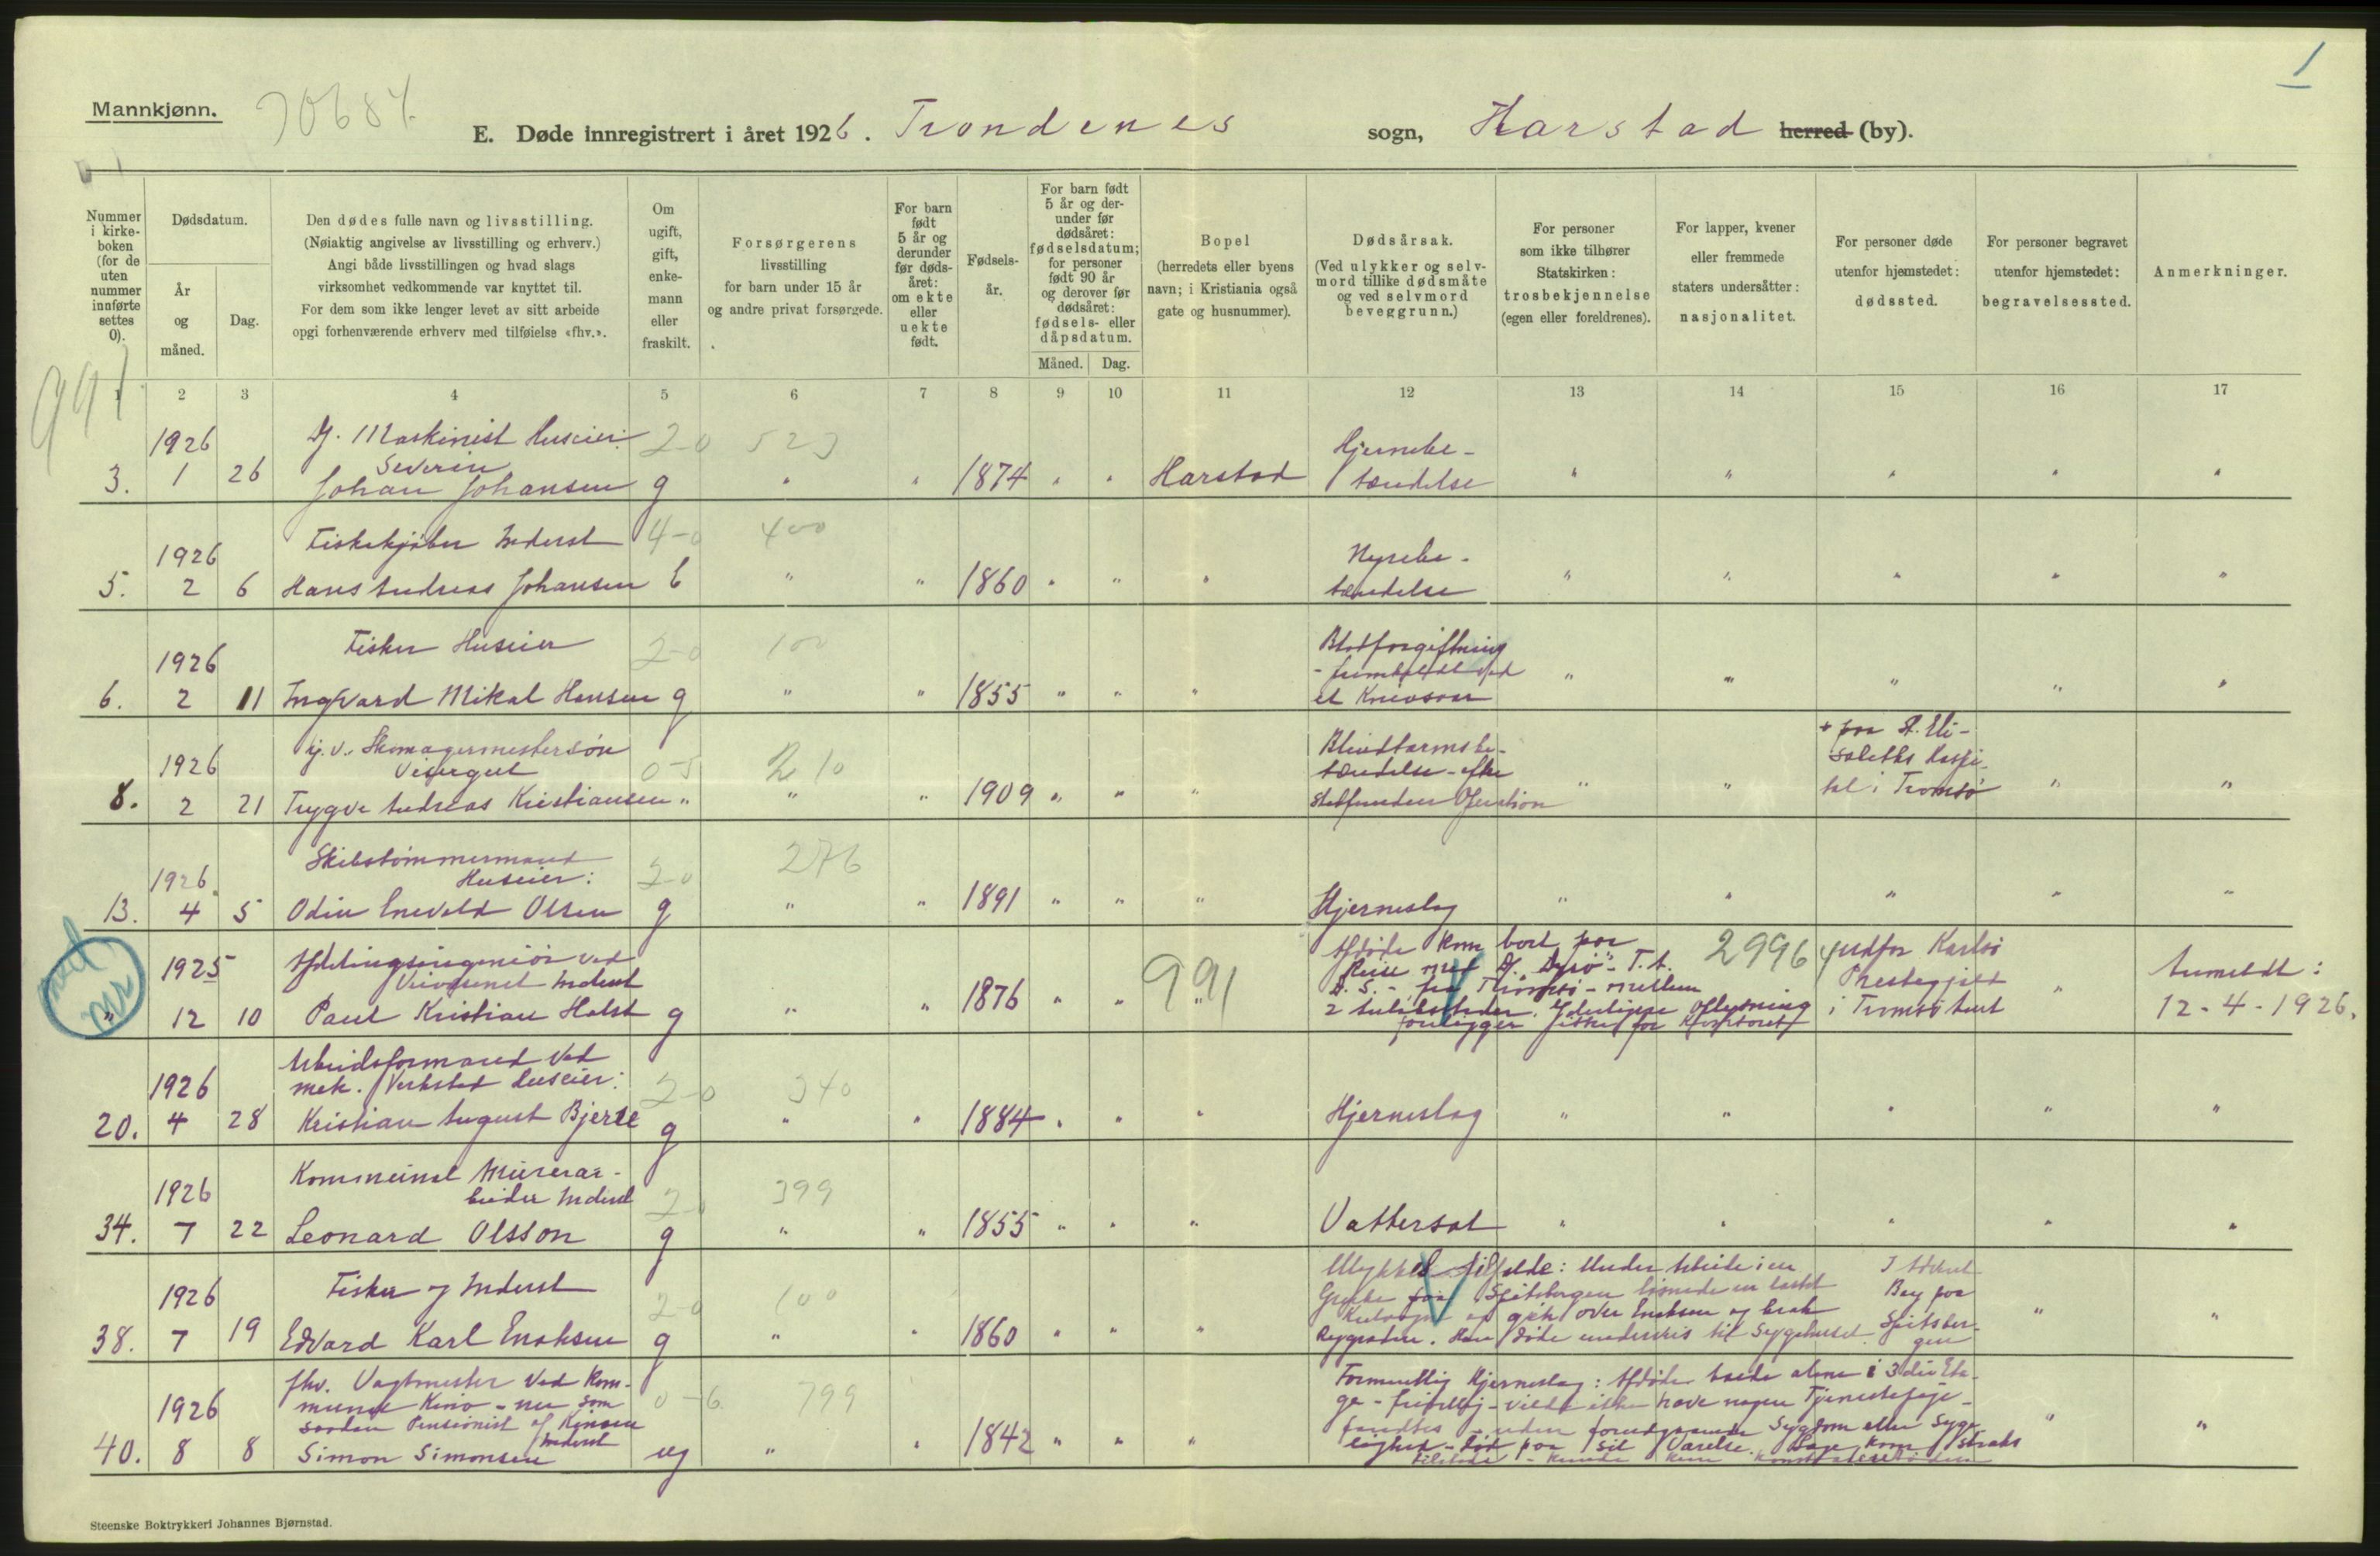 1
Mannkjønn.
E. Døde innregistrert i året 1926. Trondenes sogn, Harstad herred (by).
Nummer i kirkeboken (for de uten nummer innførte settes 0).
Dødsdatum.
År og måned.
Dag.
Den dødes fulle navn og livsstilling.
(Nøiaktig angivelse av livsstilling og erhverv.)
Angi både livsstillingen og hvad slags
virksomhet vedkommende var knyttet til.
For dem som ikke lenger levet av sitt arbeide
opgi forhenværende erhverv med tilføielse «fhv.».
Om ugift, gift, enkemann eller fraskilt.
Forsørgerens
livsstilling
for barn under 15 år
og andre privat forsørgede.
For barn født 5 år og derunder før dødsåret: om ekte eller uekte født.
Fødselsår.
For barn født 5 år og derunder før dødsåret: fødselsdatum; for personer født 90 år og derover før dødsåret: fødsels- eller dåpsdatum.
Måned. Dag.
Bopel
(herredets eller byens
navn; i Kristiania også
gate og husnummer).
Dødsårsak.
(Ved ulykker og selvmord tillike dødsmåte
og ved selvmord
beveggrunn.)
For personer
som ikke tilhører
Statskirken:
trosbekjennelse
(egen eller foreldrenes).
For lapper, kvener
eller fremmede
staters undersåtter:
nasjonalitet.
For personer døde
utenfor hjemstedet:
dødssted.
For personer begravet
utenfor hjemstedet:
begravelsessted.
Anmerkninger.
1 2 3 4 5 6 7 8 9 10 11 12 13 14 15 16 17
991
1926 Maskinist Huseier: 2-0 523 Hjernebe-
Severin
3. 1 26 Johan Johansen g " " 1874 " " Harstad tændelse " " " " "
1926 Fiskekjøber Inderst 4-0 400 Nyrebe-
5. 2 6 Hans Andreas Johansen E " " 1860 " " " tændelse " " " " "
1926 Fisker Huseier 2-0 100 Blodforgiftning
- ved
6. 2 11 Ingvard Mikal Hansen g " " 1855 " " " et Knæsaar " " " " "
1926 Skomagermestersøn 0-5 210 Blindtarmsbe- + paa St. Eli-
Visergut tændelse - efter sabeths Hospi-
8. 2 21 Trygve Andreas Kristiansen " " " 1909 " " " Operation " " tal i Tromsø " "
Skibstømmermand 276
1926 Huseier: 2-0
13. 4 5 Odin Enevold Olsen g " " 1891 " " " Hjerneslag " " " " "
1925 Afdelingsingeniør ved Afdøde kom bort paa 2996 udfor Karlsø
Veivæsenet Inderst Reise med T.A. Prestegjeld Anmeldt:
D.S. - fra Tromsø - mellem
" 12 10 Paul Kristian Holst g " " 1876 " " 991 2 Anløbssteder. Yderligere Oplysning i Tromsø Amt " 12-4-1926.
foreligger ikke for
Arbeidsformand ved
1926 mek. Verksted Huseier: 2-0 340
20. 4 28 Kristian August Bjerke g " " 1884 " " " Hjerneslag " " " " "
Kommunal Murerar-
1926 beider Inderst 2-0 399
34. 7 22 Leonard Olsson g " " 1855 " " " Vattersot " " " " "
Ulykkestilfælde: Under Arbeide i en I Advent
1926 Fisker og Inderst 2-0 100 Grube paa Spitsbergen løsnede en Bay paa
og gik over Enoksen og brak Spitsber-
38. 7 19 Edvard Karl Enoksen g " " 1860 " " " Rygraden. Han døde underveis til Sygehuset. gen " "
fhv. Vagtmester ved Kom- Formentlig Hjerneslag: Afdøde boede alene i 3die Eta-
1926 munal Kino - nu som 0-6 799 ge - vilde ikke have nogen
saadan Pensionist af Kinoen fandtes uden foregaaende Sygdom eller Syge-
Inderst
40. 8 8 Simon Simonsen ug " " 1842 " " " lighed - død paa sit Værelse. Læge kom straks " "
tilstede - kunde kun konstatere Døden
Steenske Boktrykkeri Johannes Bjørnstad.